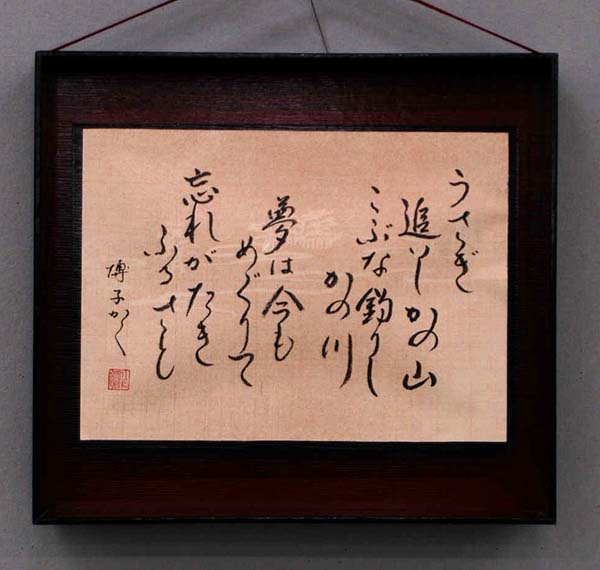 うさぎ
追いしかの山
こぶな釣りし
かの川
夢は今も
めぐりて
忘れがたき
ふるさと
博子かく